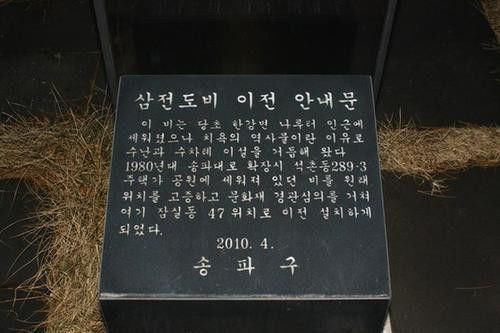 삼전도비 이전 안내문
이 비는 당초 한강변 나루터 인근에
세워졌으나 치욕의 역사물이란 이유로
수난과 수차례 이설을 거듭해 왔다
1980년대 송파대로 확장시 석촌동289-3
주택가 공원에 세워져 있던 비를 원래
위치를 고증하고 문화재 경관심의를 거쳐
여기 잠실동 47 위치로 이전 설치하게
되었다.
2010. 4.
송 파 구